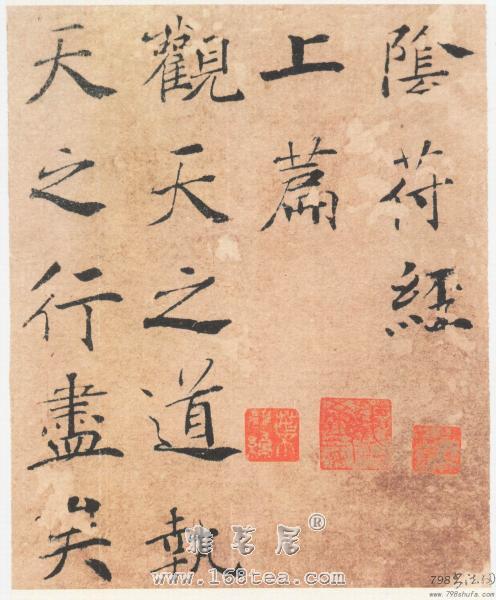 陰符經
上篇
觀天之道執
天之行盡矣
雅茗居®
www.168tea.com
798书法网
www.798shufa.com